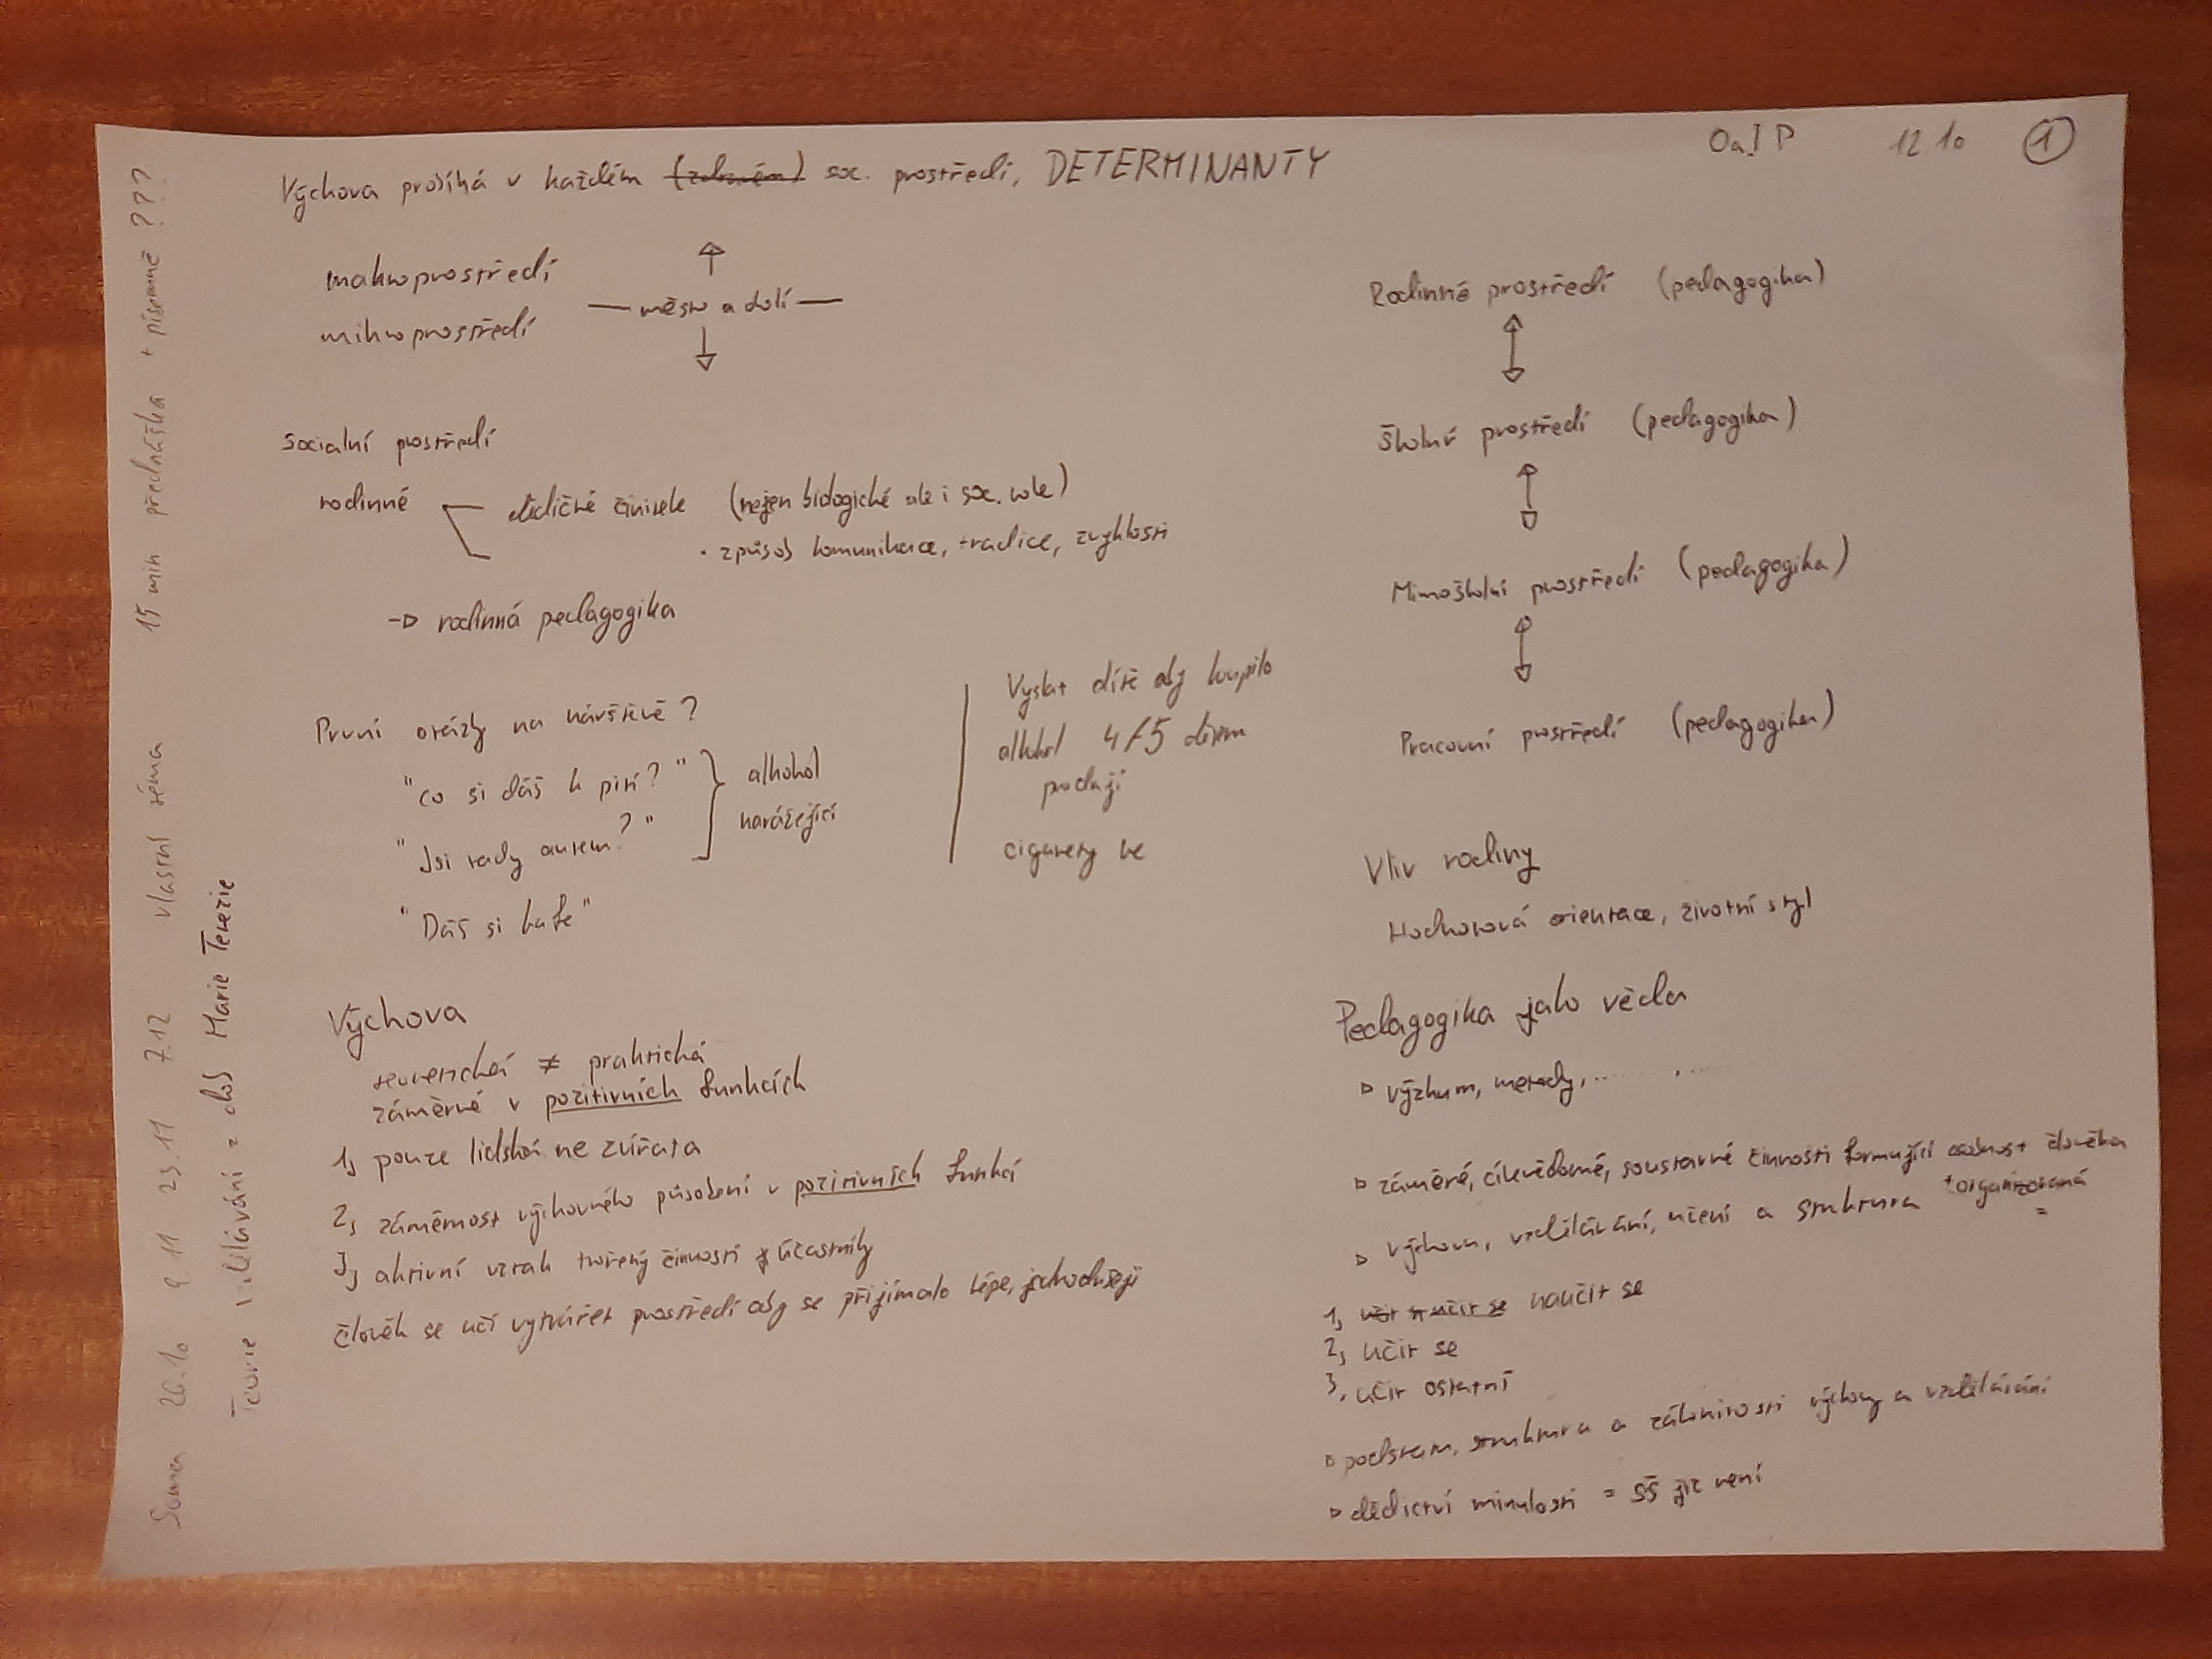 OaJP 12.10 1
Výchova probíhá v každém soc. prostředí, DETERMINANTY
makroprostředí
město a okolí
mikroprostředí
Socialní prostředí
rodinné
dědičné činitele (nejen biologické ale i soc. role)
· způsob komunikace, tradice, zvyklosti
→ rodinná pedagogika
První otázky na návštěvě?
"co si dáš k pití?"
"Jsi tady autem?"
"Dáš si kafe"
alkohol
narážející
Vyslat dítě aby koupilo
alkohol 4/5 dětem
prodají
cigarety ne
Výchova
teoretická ≠ praktická
záměrné v pozitivních funkcích
1, pouze lidská ne zvířata
2, záměrnost výchovného působení v pozitivních funkcí
3, aktivní vztah tvořený činností účastníky
člověk se učí vytvářet prostředí aby se přijímalo lépe, jednodušeji
Rodinné prostředí (pedagogika)
Školní prostředí (pedagogika)
Mimoškolní prostředí (pedagogika)
Pracovní prostředí (pedagogika)
Vliv rodiny
Hodnotová orientace, životní styl
Pedagogika jako věda
▹ výzkum, metody, ...... , ....
▹ záměrné, cílevědomé, soustavné činnosti formující osobnost člověka
+organizovaná
▹ výchova, vzdělávání, učení a struktura
1, naučit se
2, učit se
3, učit ostatní
▹ podstata, struktura a zákonitosti výchovy a vzdělávání
▹ dědictví minulosti = SŠ již není
20.10 9.11 23.11 7.12 vlastní téma 15 min přednáška + písemně ???
Teorie vzdělávání = dob Marie Terezie